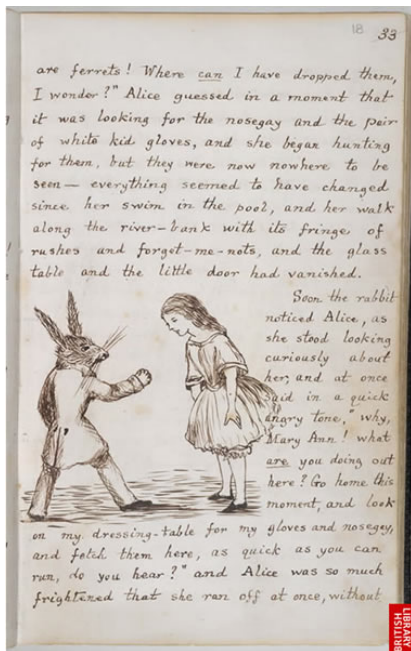 18 33
are ferrets! Where can I have dropped them,
I wonder?" Alice guessed in a moment that
it was looking for the nosegay and the pair
of white kid gloves, and she began hunting
for them, but they were now nowhere to be
seen — everything seemed to have changed
since her swim in the pool, and her walk
along the river-bank with its fringe of
rushes and forget-me-nots, and the glass
table and the little door had vanished.
Soon the rabbit
noticed Alice, as
she stood looking
curiously about
her, and at once
said in a quick
angry tone, "why,
Mary Ann! what
are you doing out
here? Go home this
moment, and look
on my dressing-table for my gloves and nosegay,
and fetch them here, as quick as you can
run, do you hear?" and Alice was so much
frightened that she ran off at once, without
BRITISH
LIBRARY